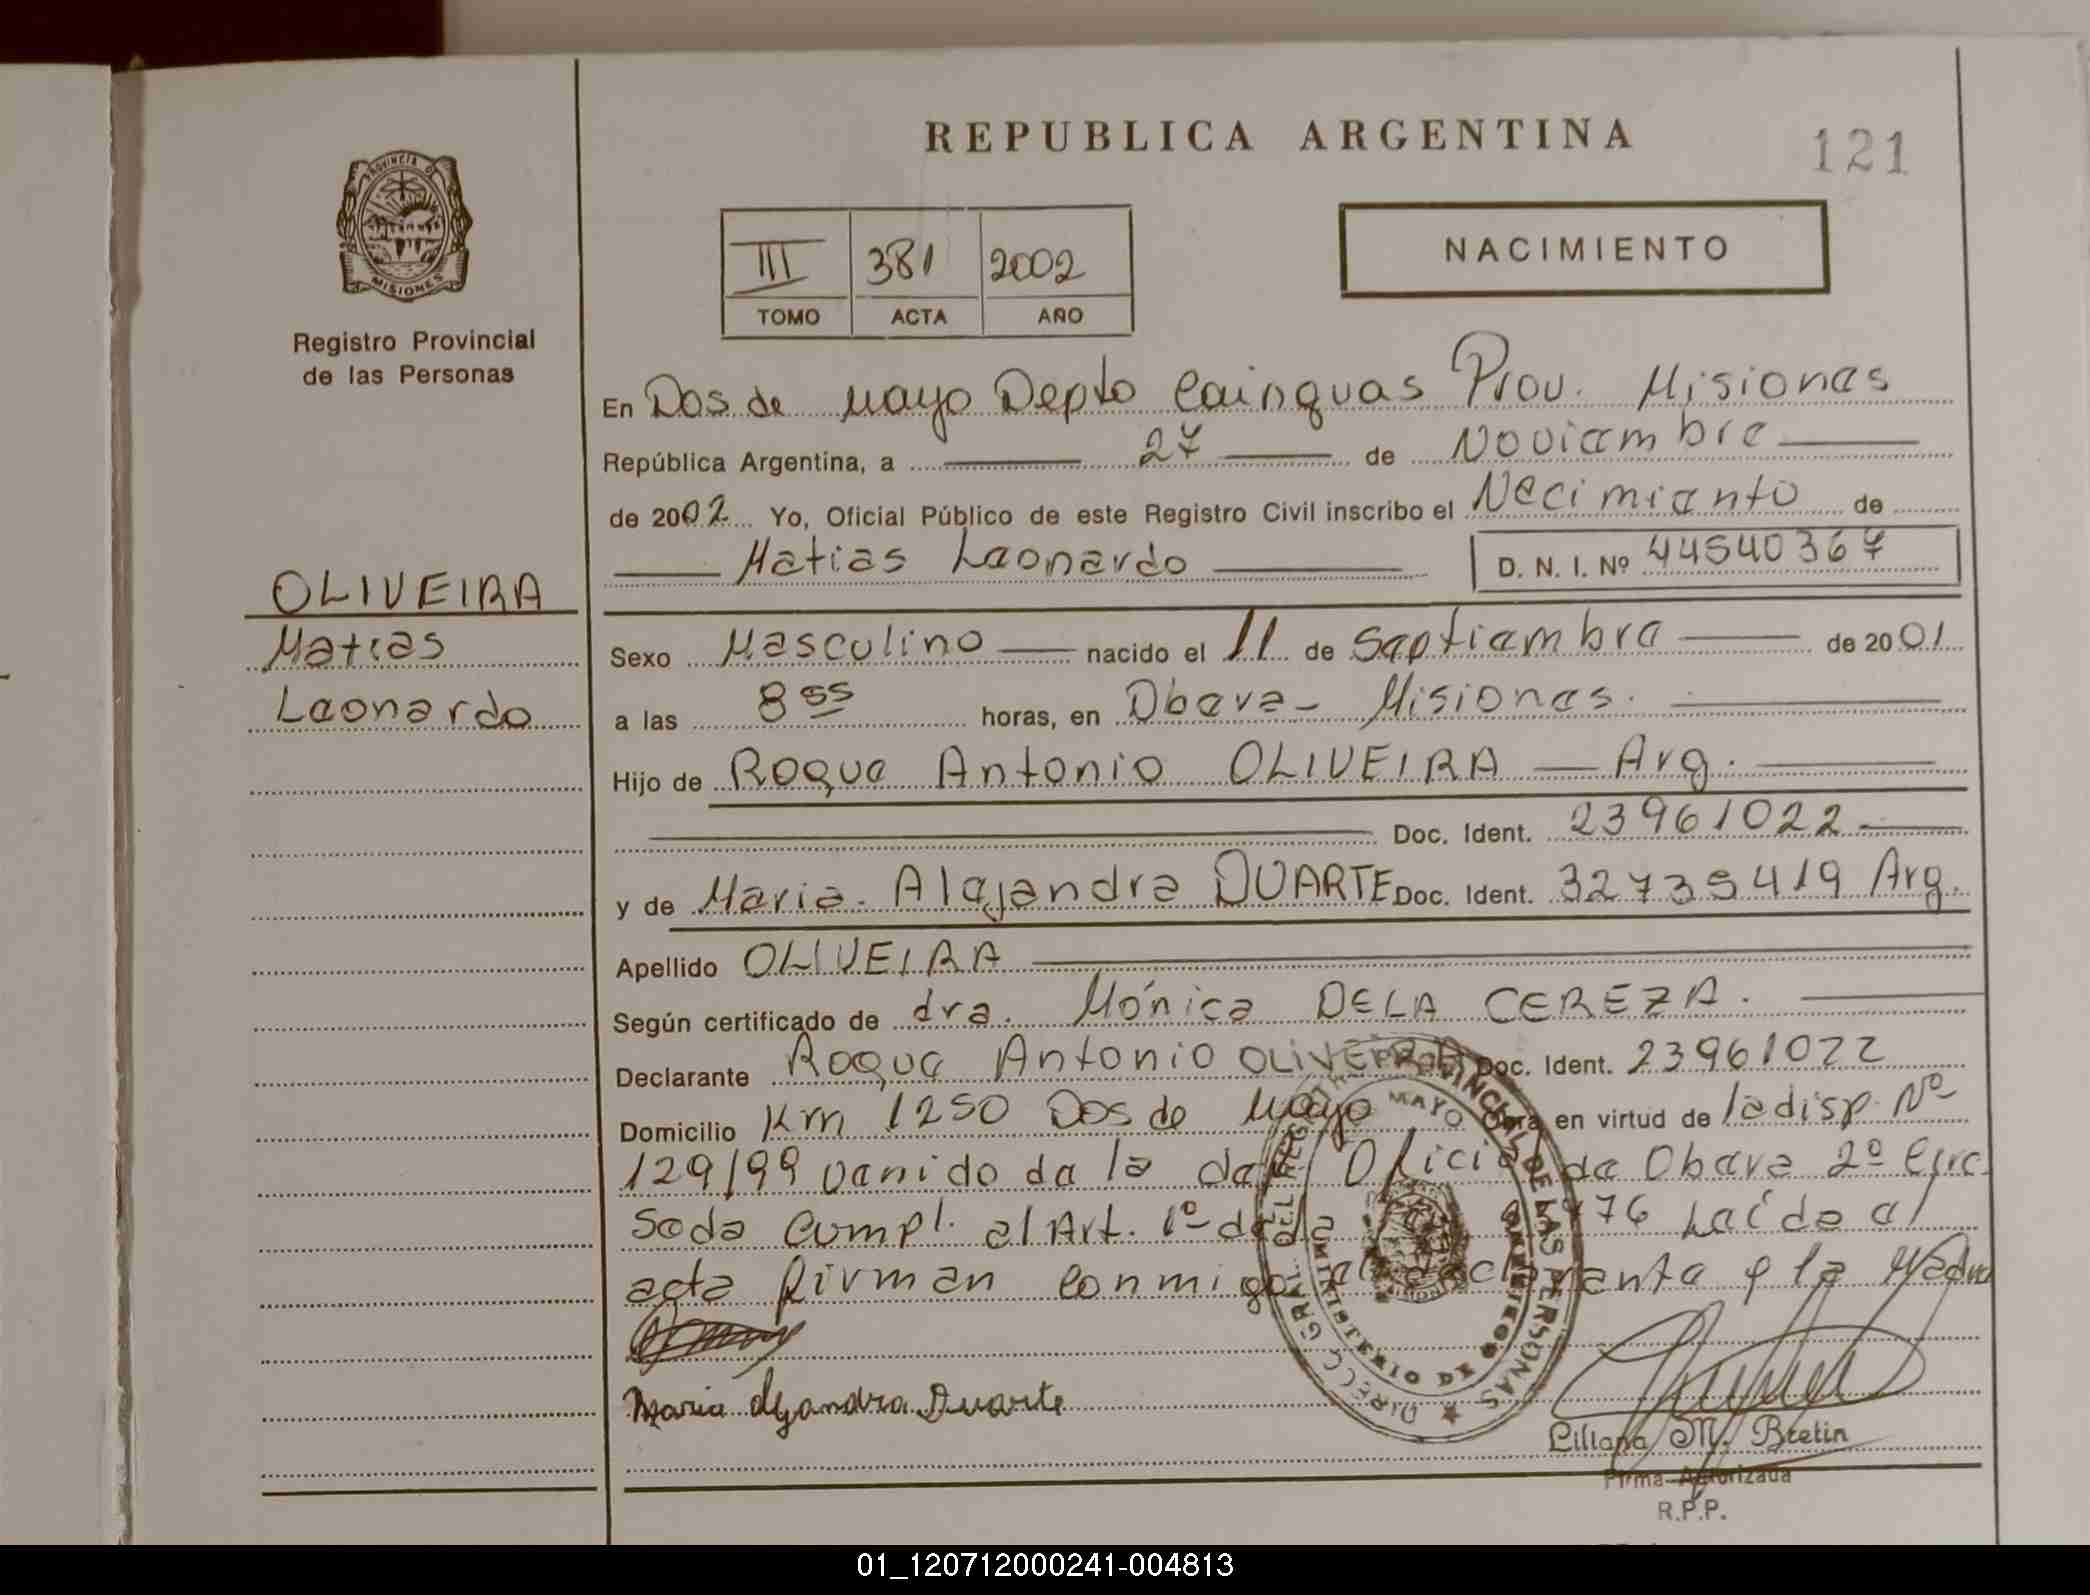 REPUBLICA ARGENTINA
121
PROVINCIA DE
MISIONES
Registro Provincial
de las Personas
III 381 2002
TOMO ACTA AÑO
NACIMIENTO
En Dos de Mayo Depto Cainguas Prov. Misiones
República Argentina, a 27 de Noviembre
de 2002 Yo, Oficial Público de este Registro Civil inscribo el Necimiento de
Matias Leonardo D. N. I. Nº 44540367
OLIVEIRA
Matias
Leonardo
Sexo Masculino nacido el 11 de Septiembre de 2001
a las 8 55 horas, en Obera - Misiones.
Hijo de Roque Antonio OLIVEIRA — Arg.
Doc. Ident. 23961022
y de Maria Alejandra DUARTE Doc. Ident. 32735419 Arg.
Apellido OLIVEIRA
Según certificado de dra. Mónica DELA CEREZA.
Declarante Roque Antonio OLIVEIRA Doc. Ident. 23961022
Domicilio Km 1250 Dos de Mayo Obra en virtud de la disp. Nº
129/99 venido de la del Oficial de Obera 2º Circ
soda Cumpl. al Art. 1º de la 76 Leído el
acta firman conmigo el declarante e la Madre
Maria Alejandra Duarte
DIRECC. GRAL. DEL REGISTRO PROVINCIAL DE LAS PERSONAS
MINISTERIO DE
MAYO
Liliana M. Bretin
Firma Autorizada
R.P.P.
01_120712000241-004813